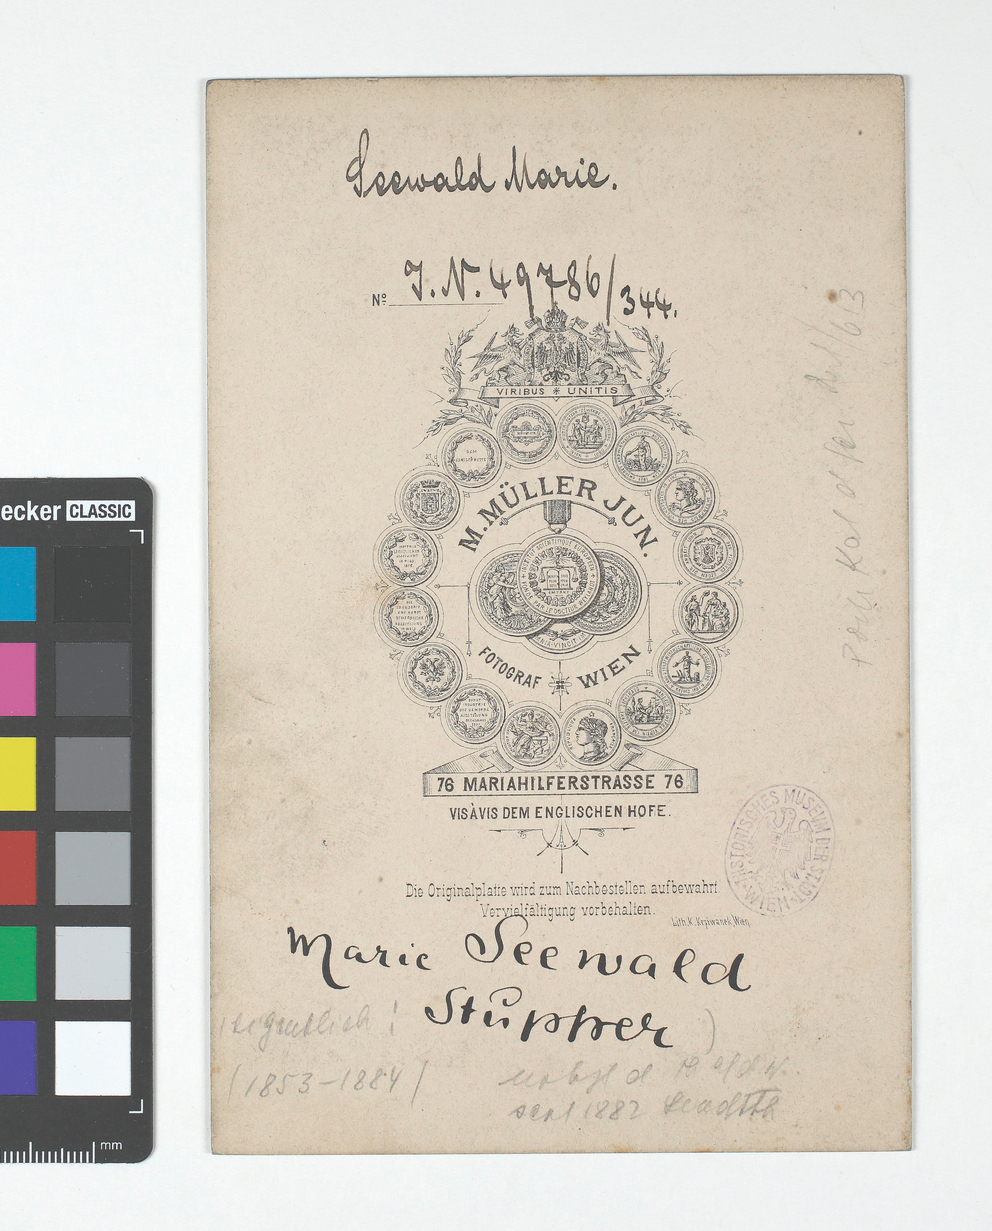 Seewald Marie.
Nº I.N. 49786/344.
VIRIBUS * UNITIS
M. MÜLLER JUN.
FOTOGRAF WIEN
76 MARIAHILFERSTRASSE 76
VISÀVIS DEM ENGLISCHEN HOFE.
Die Originalplatte wird zum Nachbestellen aufbewahrt
Vervielfältigung vorbehalten.
Lith. K. Krziwanek, Wien.
HISTORISCHES MUSEUM DER STADT WIEN
Marie Seewald
(eigentlich: Stupper)
(1853-1884)
1882 Stadtth
ecker CLASSIC
mm